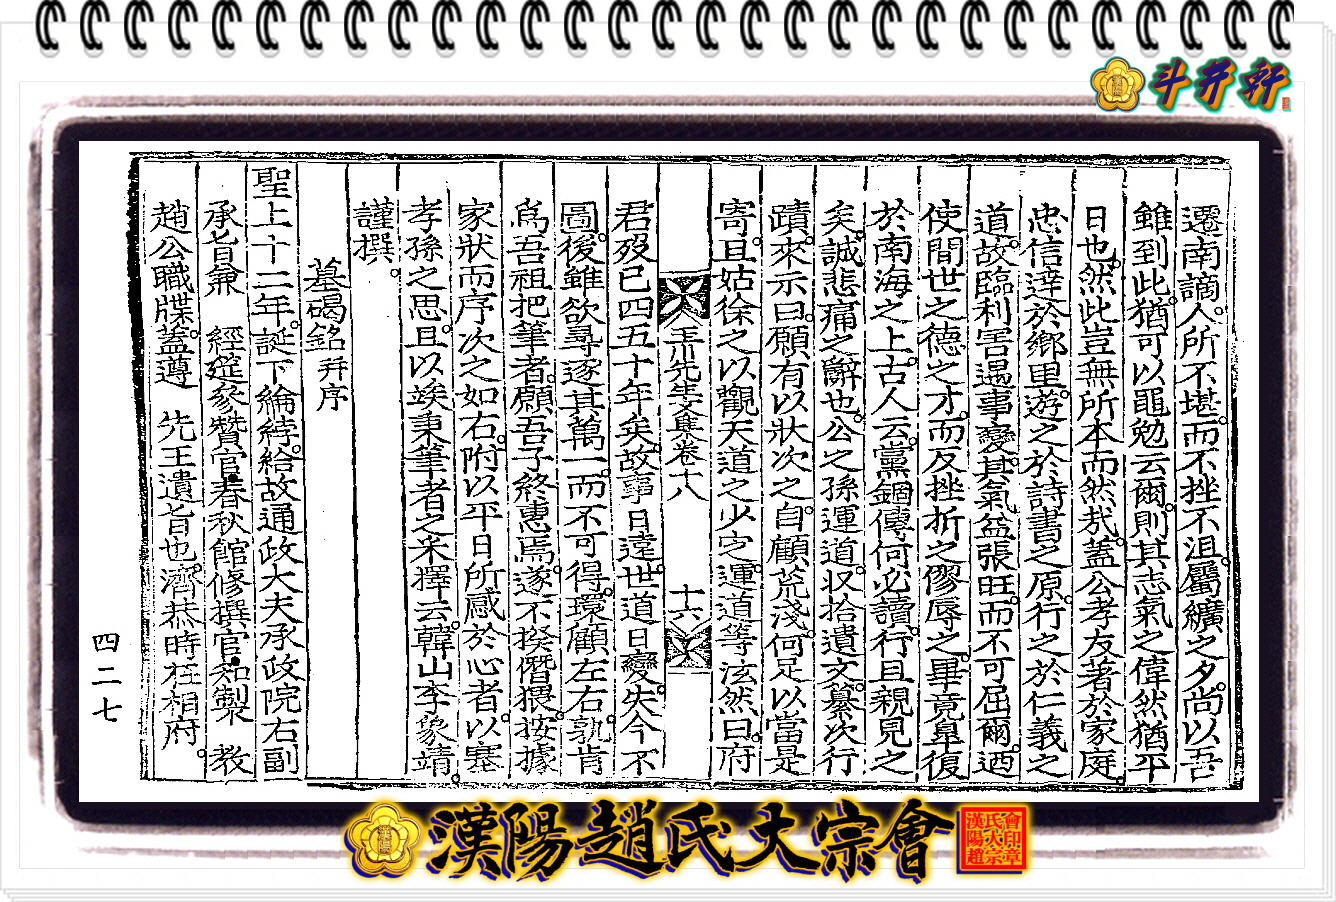 斗井軒
遷南謫人所不堪而不挫不沮屬纊之夕尚以吾
雖到此猶可以黽勉云爾則其志氣之偉然猶平
日也然此豈無所本而然哉蓋公孝友著於家庭
忠信達於鄉里遊之於詩書之原行之於仁義之
道故臨利害遇事變其氣益張旺而不可屈爾迺
使間世之德之才而反挫折之僇辱之畢竟皐復
於南海之上古人云黨錮傳何必讀行且親見之
矣誠悲痛之辭也公之孫運道收拾遺文纂次行
蹟來示曰願有以狀次之自顧荒淺何足以當是
寄且姑徐之以觀天道之少定運道等泫然曰府
玉川先生文集卷十八 十六
君歿已四五十年矣故事日遠世道日變失今不
圖後雖欲尋逐其萬一而不可得環顧左右孰肯
爲吾祖把筆者願吾子終惠焉遂不揆僭猥按據
家狀而序次之如右附以平日所感於心者以塞
孝孫之思且以竢秉筆者之采擇云韓山李象靖
謹撰
墓碣銘 幷序
聖上十二年誕下綸綍給故通政大夫承政院右副
承旨兼 經筵參贊官春秋館修撰官知製 敎
趙公職牒蓋遵 先王遺旨也濟恭時在相府
四二七
漢陽趙氏大宗會
漢陽趙氏大宗會印章